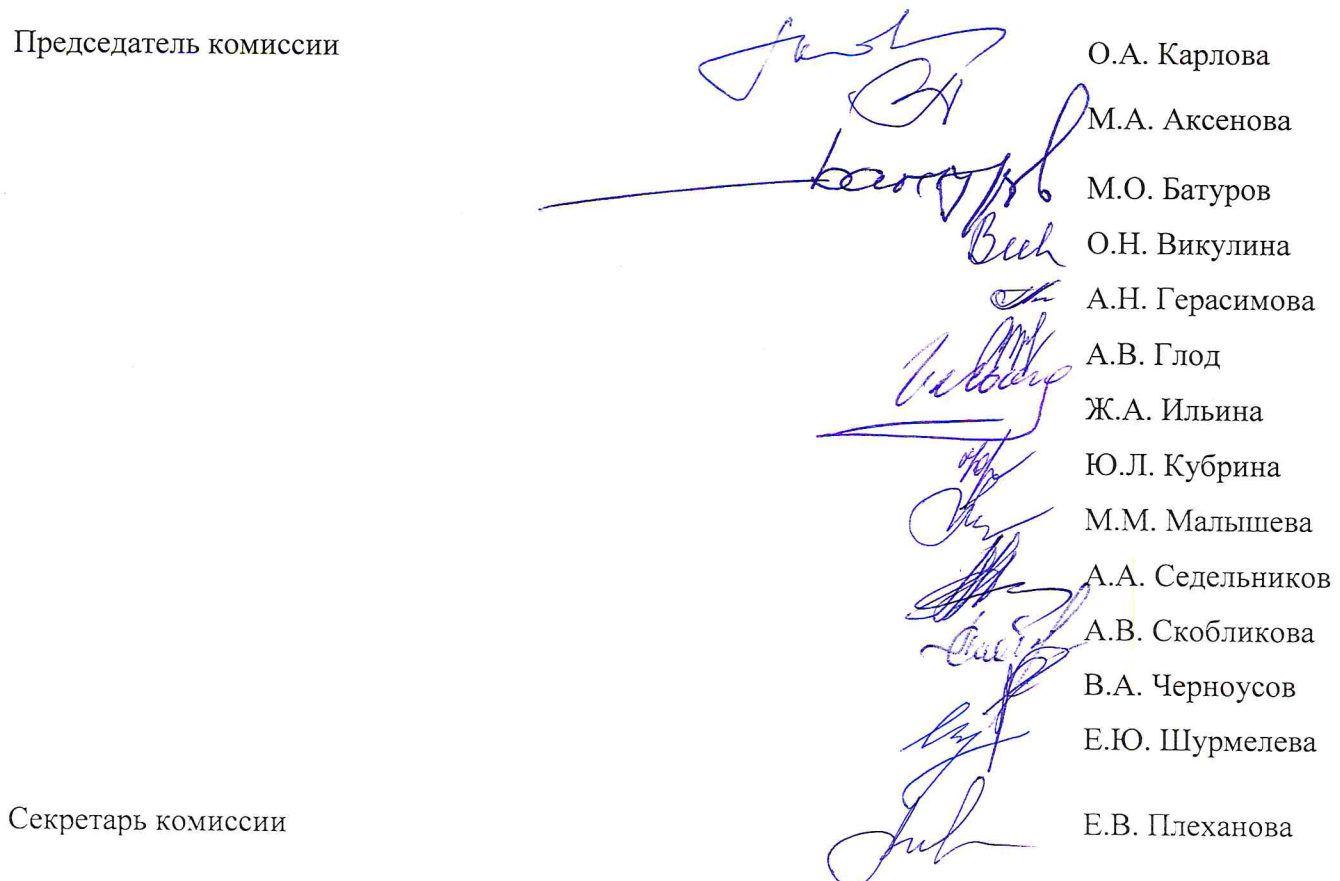 Председатель комиссии О.А. Карлова
М.А. Аксенова
Батуров М.О. Батуров
О.Н. Викулина
А.Н. Герасимова
А.В. Глод
Ж.А. Ильина
Ю.Л. Кубрина
М.М. Малышева
А.А. Седельников
А.В. Скобликова
В.А. Черноусов
Е.Ю. Шурмелева
Секретарь комиссии Е.В. Плеханова